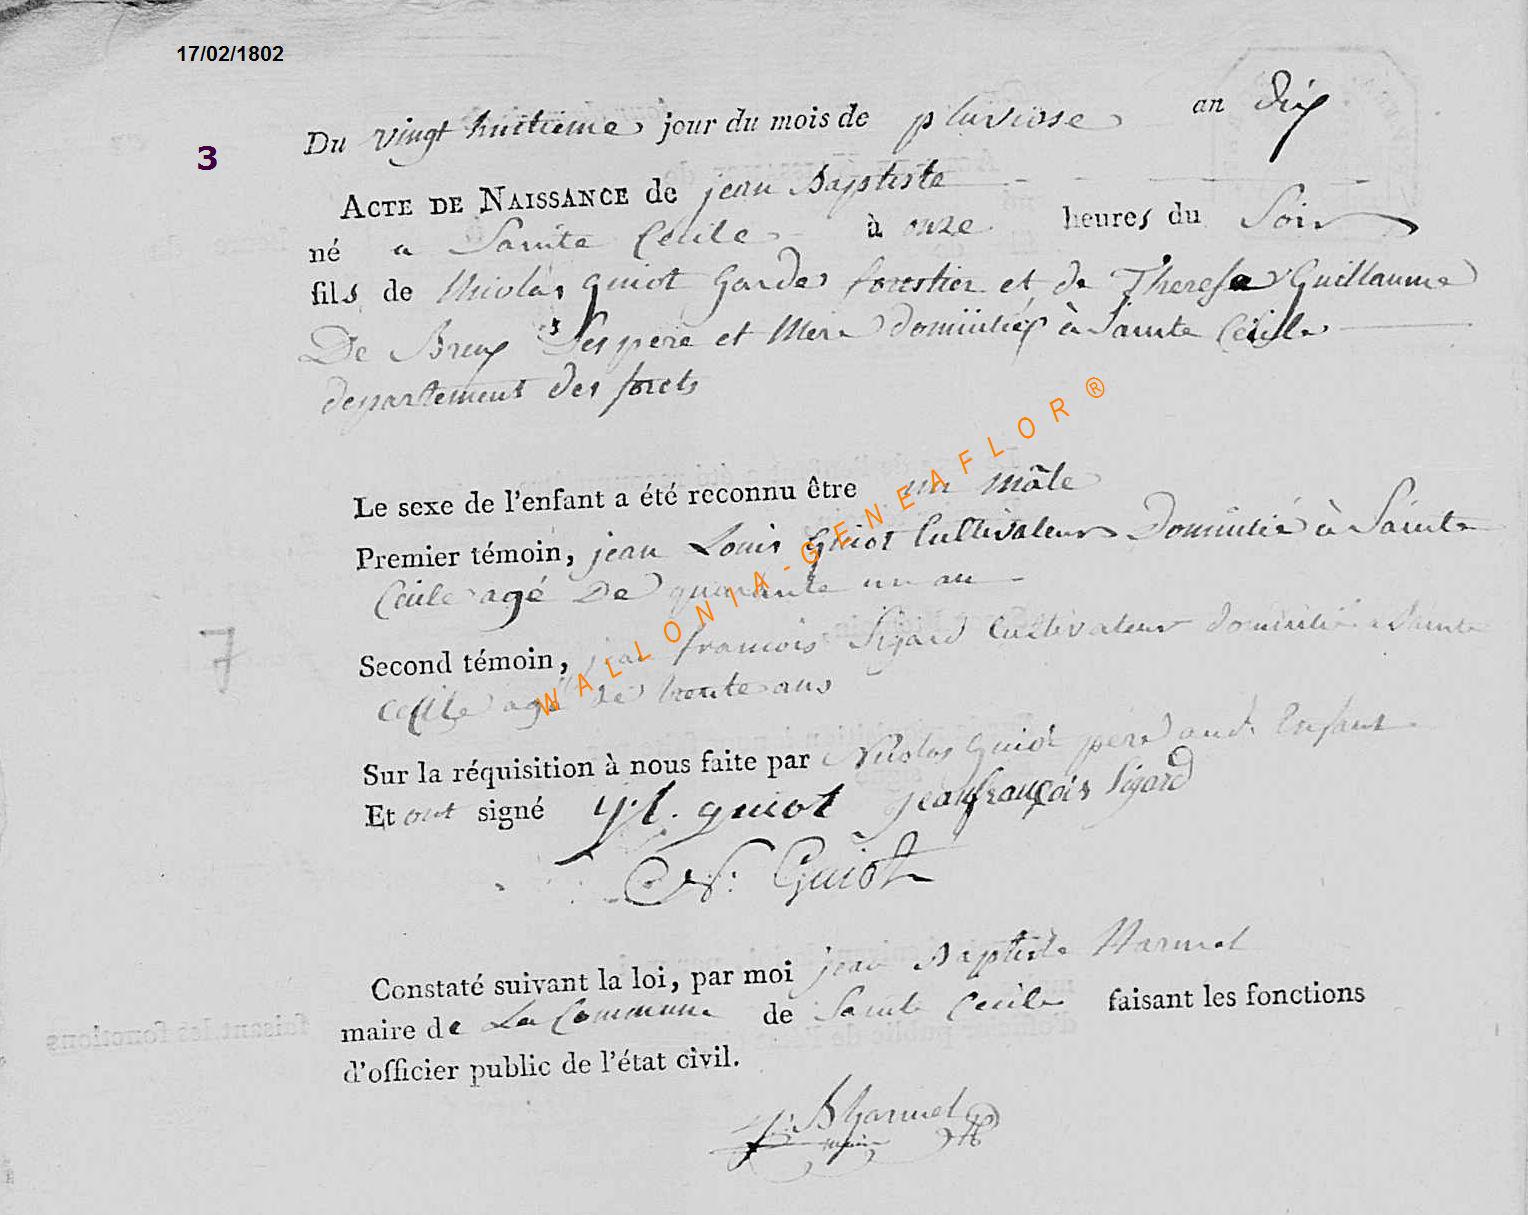 17/02/1802
3
Du vingt huitieme jour du mois de pluviose an dix
ACTE DE NAISSANCE de jean Baptiste
né a Sainte Cecile à onze heures du Soir
fils de Nicolas guiot Garde forestier et de Therese Guillaume
De Breux Ses pere et Mere domiciliés à Sainte Cecile
departement des forets
Le sexe de l'enfant a été reconnu être un mâle
Premier témoin, jean Louis Guiot Cultivateur Domicilié à Sainte
Cecile agé De quarante un an
Second témoin, jean francois Sigard Cultivateur domicilié a Sainte
Cecile agé de trente ans
Sur la réquisition à nous faite par Nicolas Guiot pere enfant
Et ont signé j.l. guiot jeanfrançois Sigard
N. Guiot
Constaté suivant la loi, par moi jean Baptiste Harmel
maire de La Commune de Sainte Cecile faisant les fonctions
d'officier public de l'état civil.
J. B harmel
maire
7
WALLONIA-GENEAFLOR®